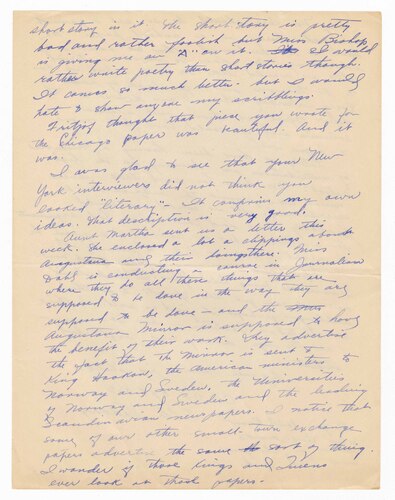 short story in it. The short story is pretty
bad and rather foolish but Miss Bishop
is giving me an "A" on it. I would
rather write poetry than short stories though.
It comes so much better. but I would
hate to show anyone my scribblings.
Fritjof thought that piece you wrote for
the Chicago paper was beautiful. And it
was.
I was glad to see that your New
York interviewers did not think you
looked "literary" - It confirms my own
ideas. That description is very good.
Aunt Martha sent us a letter this
week. She enclosed a lot a clippings about
Augustana and their doings there. Miss
Dahl is conducting a course in Journalism
where they do all those things that are
supposed to be done in the way they are
supposed to be done - and the
Augustana Mirror is supposed to have
the benefit of their work. They advertise
the fact that the Mirror is sent to
King Haakon, the American ministers to
Norway and Sweden, the Universities
of Norway and Sweden and the leading
Scandinavian newspapers. I notice that
some of our other small town exchange
papers advertise the same sort of thing.
I wonder if those kings and Queens
ever look at those papers.